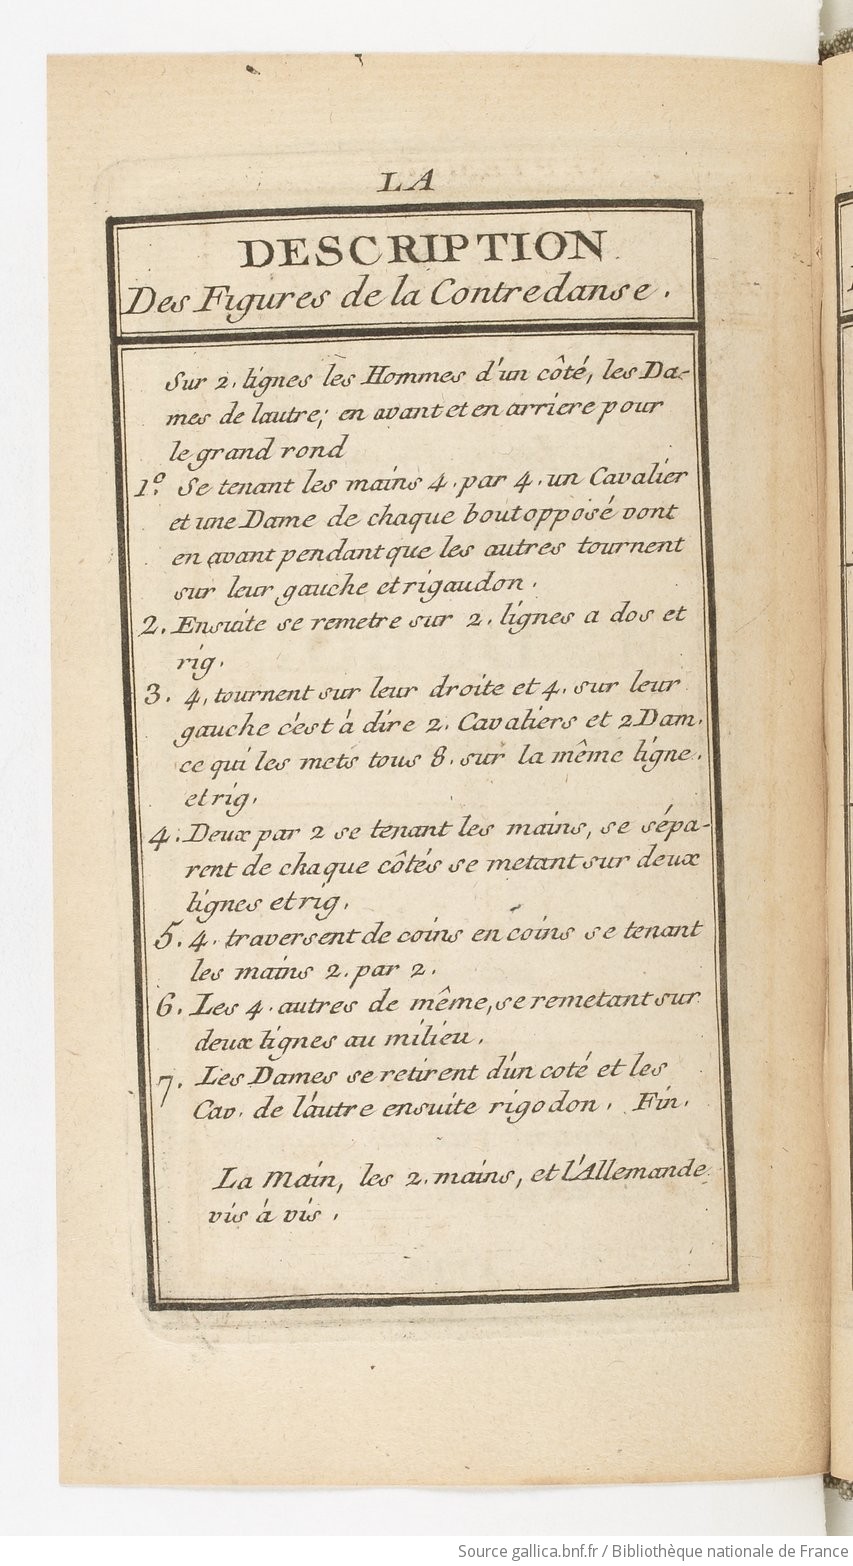 LA
DESCRIPTION
Des Figures de la Contredanse.
Sur 2. lignes les Hommes d'un côté, les Da-
mes de lautre; en avant et en arriere pour
le grand rond
1.º Se tenant les mains 4. par 4. un Cavalier
et une Dame de chaque bout opposé vont
en avant pendant que les autres tournent
sur leur gauche et rigaudon.
2. Ensuite se remetre sur 2. lignes a dos et
rig.
3. 4, tournent sur leur droite et 4. sur leur
gauche c'est à dire 2. Cavaliers et 2 Dam.
ce qui les mets tous 8. sur la même ligne.
et rig.
4. Deux par 2 se tenant les mains, se sépa-
rent de chaque côtés se metant sur deux
lignes et rig.
5. 4. traversent de coins en coins se tenant
les mains 2. par 2.
6. Les 4. autres de même, se remetant sur
deux lignes au milieu.
7. Les Dames se retirent d'un coté et les
Cav. de l'autre ensuite rigodon. Fin.
La Main, les 2. mains, et l'Allemande
vis à vis.
Source gallica.bnf.fr / Bibliothèque nationale de France